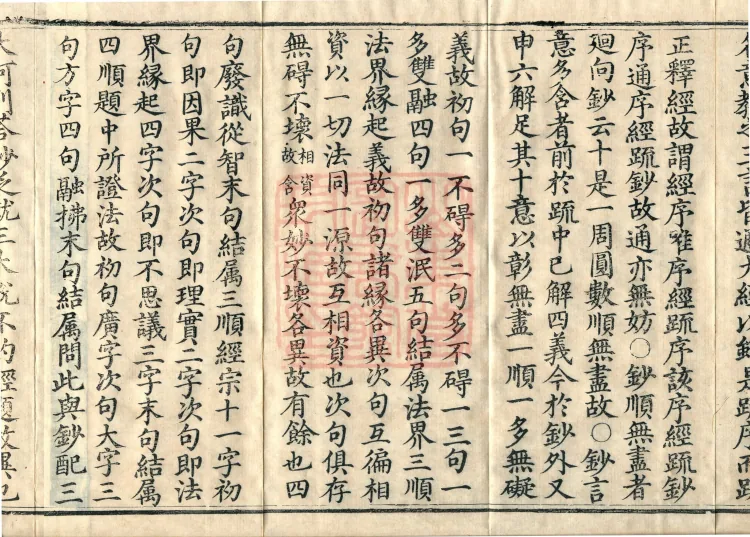 正釋經故謂經序唯序經䟽序該序經䟽鈔
序通序經䟽鈔故通亦無妨〇鈔順無盡者
廻向鈔云十是一周圓數順無盡故〇鈔言
意多含者前於䟽中已解四義今於鈔外又
申六解足其十意以彰無盡一順一多無礙
義故初句一不碍多二句多不碍一三句一
多雙融四句一多雙泯五句結属法界三順
法界縁起義故初句諸縁各異次句互徧相
資以一切法同一源故互相資也次句俱存
無碍不壊相資故含衆妙不壊各異故有餘也四
句廢識從智末句結属三順經宗十一字初
句即因果二字次句即理實二字次句即法
界縁起四字次句即不思議三字末句結属
四順題中所證法故初句廣字次句大字三
句方字四句融拂末句結属問此與鈔配三